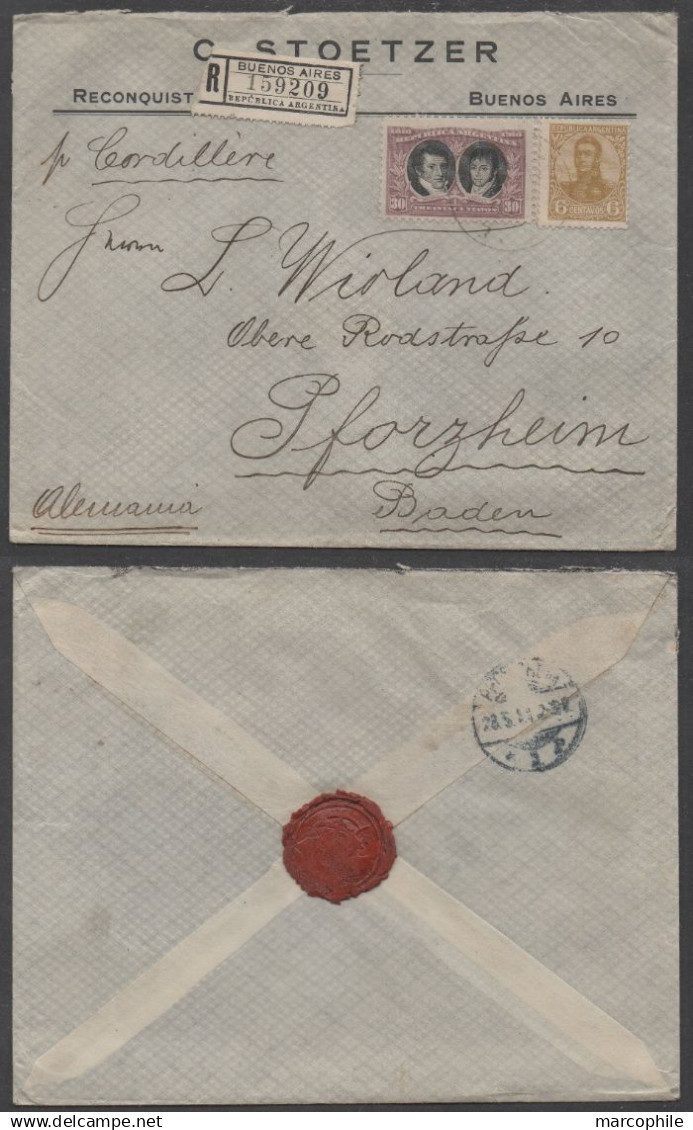 C. STOETZER
R BUENOS AIRES
159209
REPÚBLICA ARGENTINA
RECONQUIST
BUENOS AIRES
p Cordillère
1810 REPUBLICA ARGENTINA 1910
30 30
REPUBLICA ARGENTINA
6 CENTAVOS 6
Herrn
L. Wioland.
Obere Rodstraße 10
Pforzheim
Baden
Alemania
28.5.11.
* 1 P
marcophile